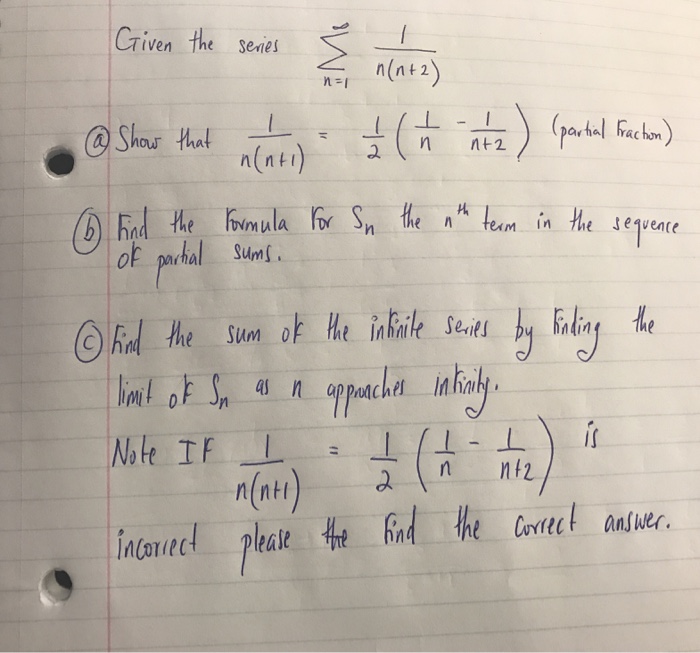 Given the series ∞ Σ n=1 1/n(n+2)
(a) Show that 1/n(n+1) = 1/2 (1/n - 1/n+2) (partial fraction)
(b) Find the formula for Sn the nth term in the sequence
of partial sums.
(c) Find the sum of the infinite series by finding the
limit of Sn as n approaches infinity.
Note If 1/n(n+1) = 1/2 (1/n - 1/n+2) is
incorrect please the find the correct answer.